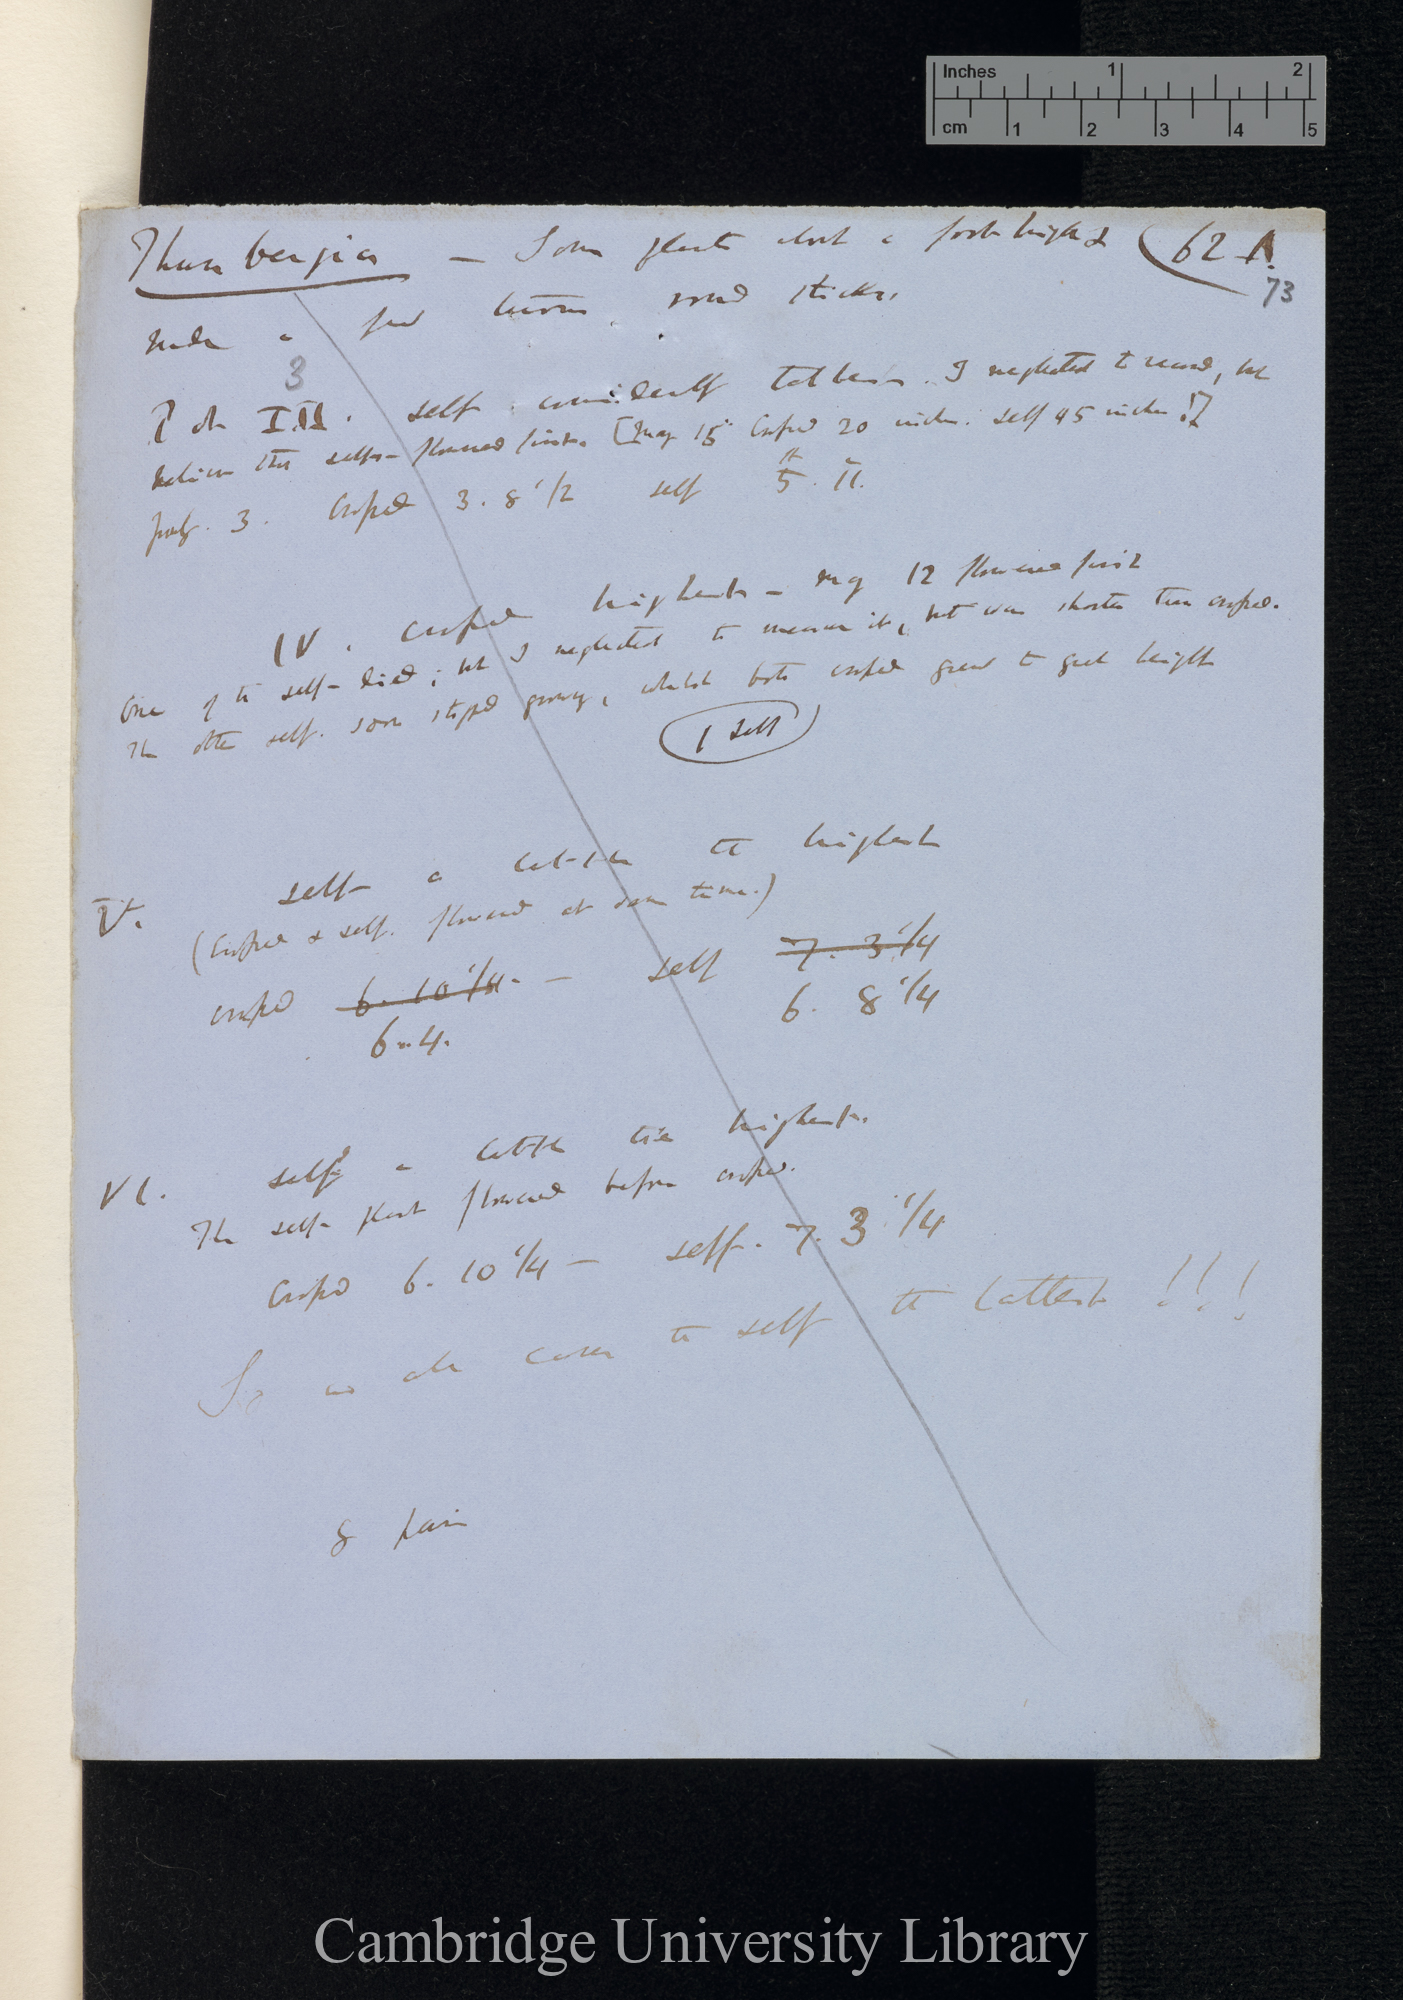 Inches 1 2
cm 1 2 3 4 5
Thunbergia — Some plants about a foot high & (62 A.
73
made a few turns round sticks.
3
Pot III. self considerably taller. I neglected to record, but
believe that self-flowered first. [May 15 Crossed 20 inches. self 45 inches!]
July. 3. Crossed 3. 8 1/2 self 5. 11.
ft
IV. crossed highest — May 12 flowered first
One of the self- died; but I neglected to measure it, but was shorter than crossed.
The other self. soon stopped growing, whilst both crossed grew to great height
1 self
V. self- a little the highest
(Crossed & self. flowered at same time.)
crossed 6. 10 1/4. — self 7. 3 1/4
6 . 4. 6. 8 1/4
VI. self a little the highest.
The self- plant flowered before crossed.
Crossed 6. 10 1/4 — self. 7. 3 1/4
So in all cases the self the tallest !!!
8 pairs
Cambridge University Library